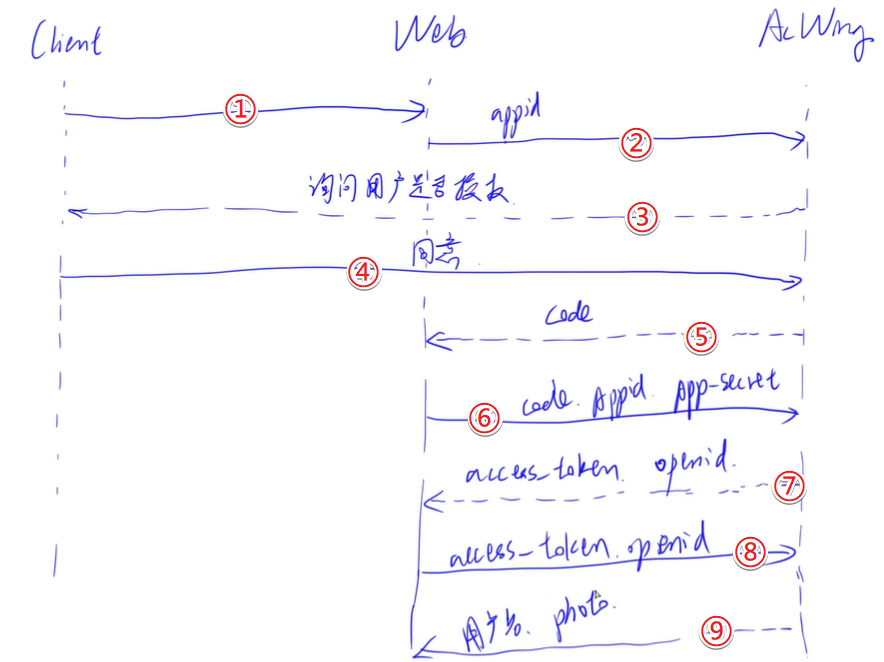 Client Web AcWing
①
appid
②
询问用户是否授权
③
同意
④
code
⑤
code. Appid. App-secret
⑥
access_token. openid.
⑦
access_token. openid
⑧
用户名. photo.
⑨